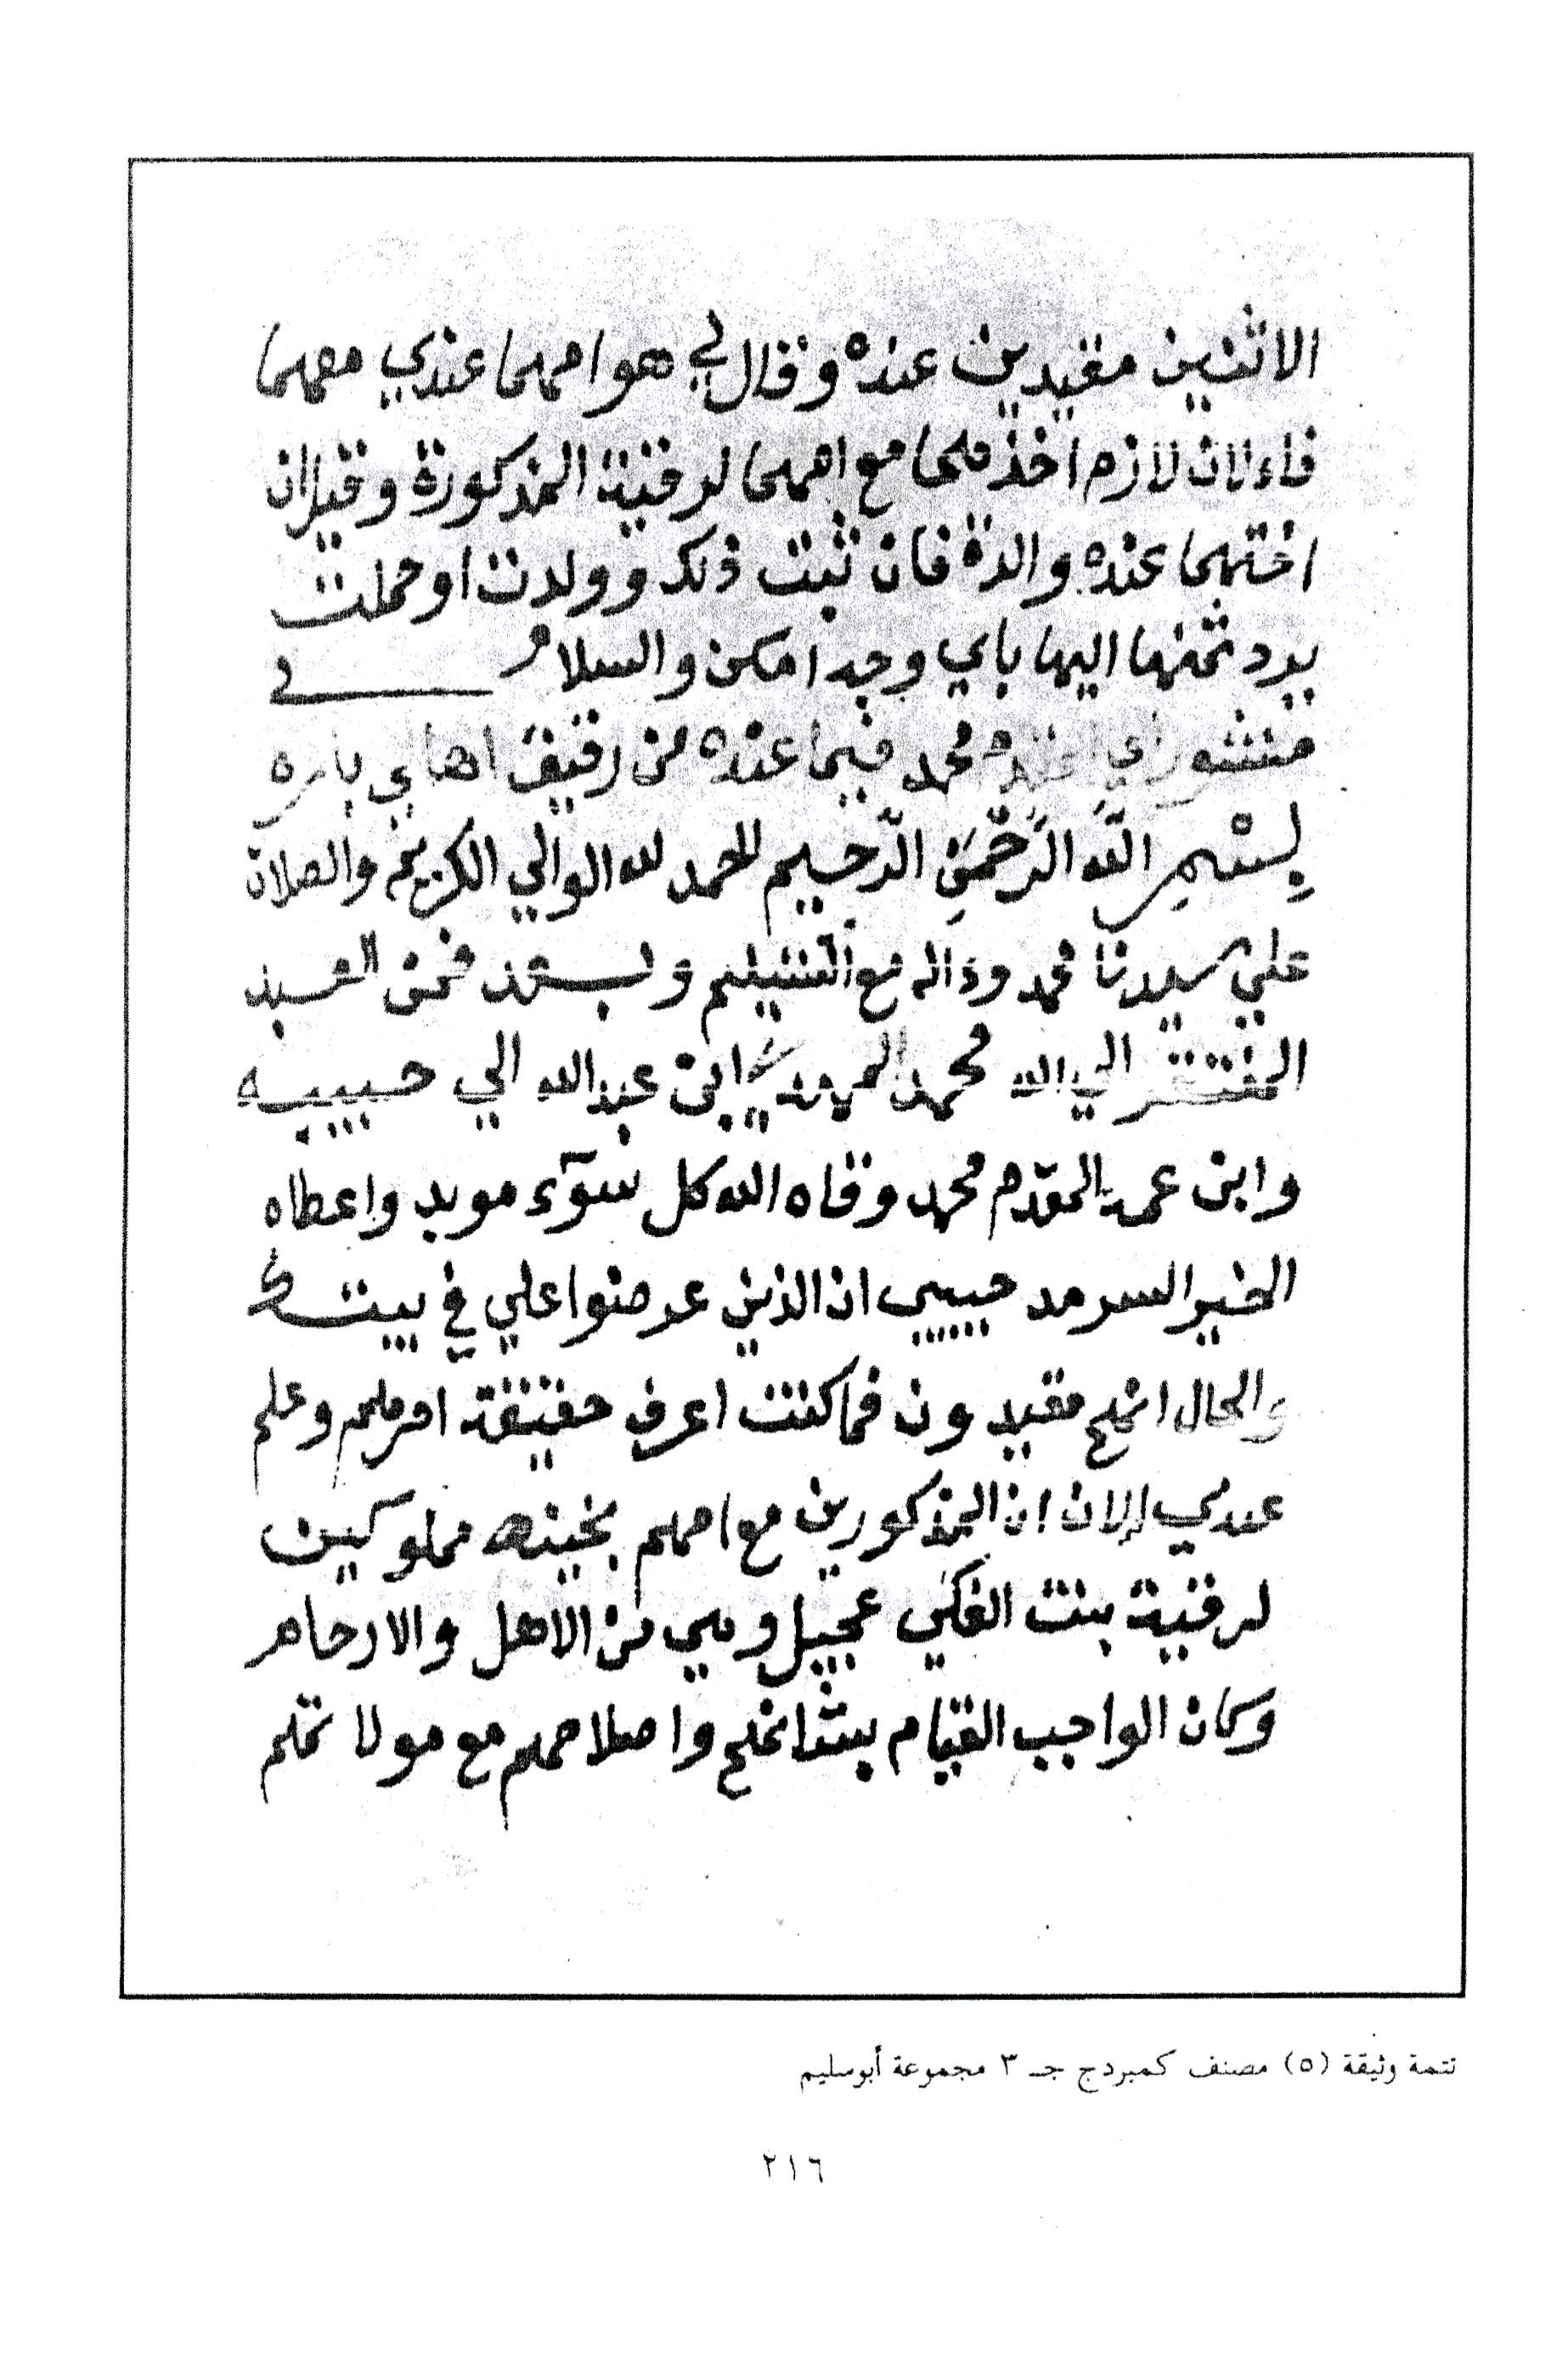 الاثنين مقيدين عنده وقال لي هوا مهما عندي معهما
فاءلان لازم اخذهما مع امهما لرقية المذكورة وقيل ان
اختهما عنده والدة فان ثبت ذلك وولدت او حملت
يرد ثمنها اليها باي وجه امكن والسلام في
منشور محمد فيما عنده من رقيق اهالي باره
بِسْمِ اللَّهِ الرَّحْمَنِ الرَّحِيمِ الحمد لله الوالي الكريم والصلاة
علي سيدنا محمد وءاله مع التسليم وبعد فمن العبد
المفتقر الي الله محمد المهدي ابن عبد الله الي حبيبه
وابن عمه المقدم محمد وقاه الله كل سوٓء موبد واعطاه
الخير السرمد حبيبي ان الذين عرضوا علي في بيتك
والحال انهم مقيدون فما كنت اعرف حقيقة امرهم وعلم
عندي الان ان المذكورين مع امهم بخيته مملوكين
لرقية بنت الفكي عجيل وهي من الاهل والارحام
وكان الواجب القيام بشانهم واصلاحهم مع مولاتهم
تتمة وثيقة (٥) مصنف كمبردج جـ ٣ مجموعة أبوسليم
٢١٦